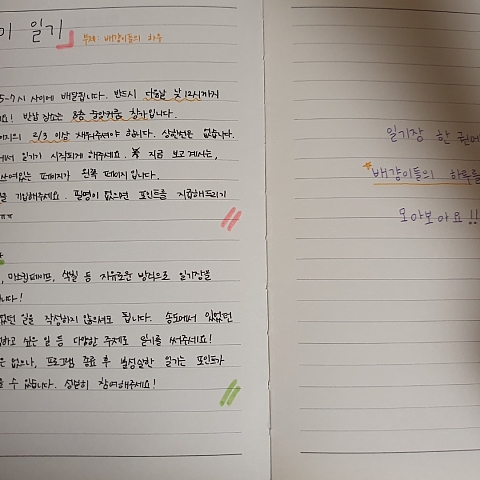 이 일기
부제: 배걍이들의 하루
5-7시 사이에 배달됩니다. 반드시 다음날 낮 12시까지
요! 반납 장소는 중앙커뮵 창가입니다.
이지의 2/3 이상 채워주셔야 합니다. 상한선은 없습니다.
에서 일기가 시작되게 해주세요. ※ 지금 보고 계시는,
쓰여있는 페이지가 왼쪽 페이지입니다.
기입해주세요. 필명이 없으면 포인트를 지급해드리기
ㅠㅠ
, 마스킹테이프, 색칠 등 자유로운 방식으로 일기장을
니다!
있었던 일을 작성하지 않으셔도 됩니다. 송도에서 있었던
하고 싶은 일 등 다양한 주제로 일기를 써주세요!
은 없으나, 프로그램 종료 후 불성실한 일기는 포인트가
수 있습니다. 성실히 참여해주세요!
일기장 한 권에
배걍이들의 하루를
모아보아요!!